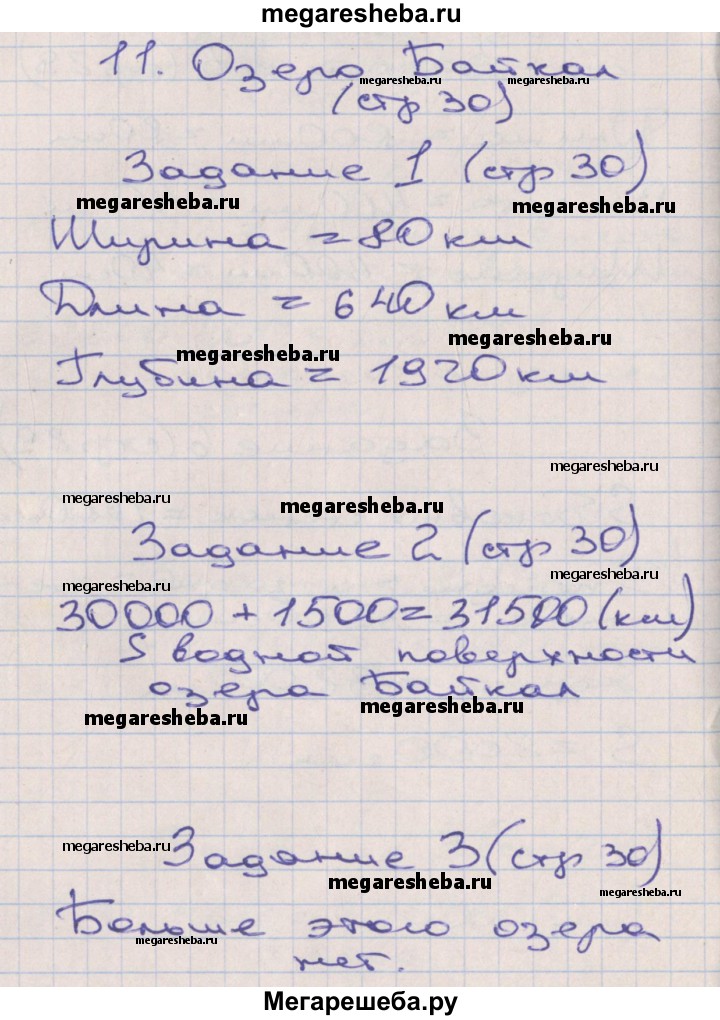 megaresheba.ru
11. Озеро Байкал
megaresheba.ru megaresheba.ru
(стр 30)
Задание 1 (стр 30)
megaresheba.ru megaresheba.ru
Ширина = 80 км
Длина = 640 км
megaresheba.ru
megaresheba.ru
Глубина = 1920 км
megaresheba.ru
megaresheba.ru
megaresheba.ru
Задание 2 (стр 30)
megaresheba.ru
megaresheba.ru
30000 + 1500 = 31500 (км)
S водной поверхности
озера Байкал
megaresheba.ru
megaresheba.ru
megaresheba.ru
Задание 3 (стр 30)
megaresheba.ru
megaresheba.ru
Больше этого озера
megaresheba.ru
нет.
Мегарешеба.ру